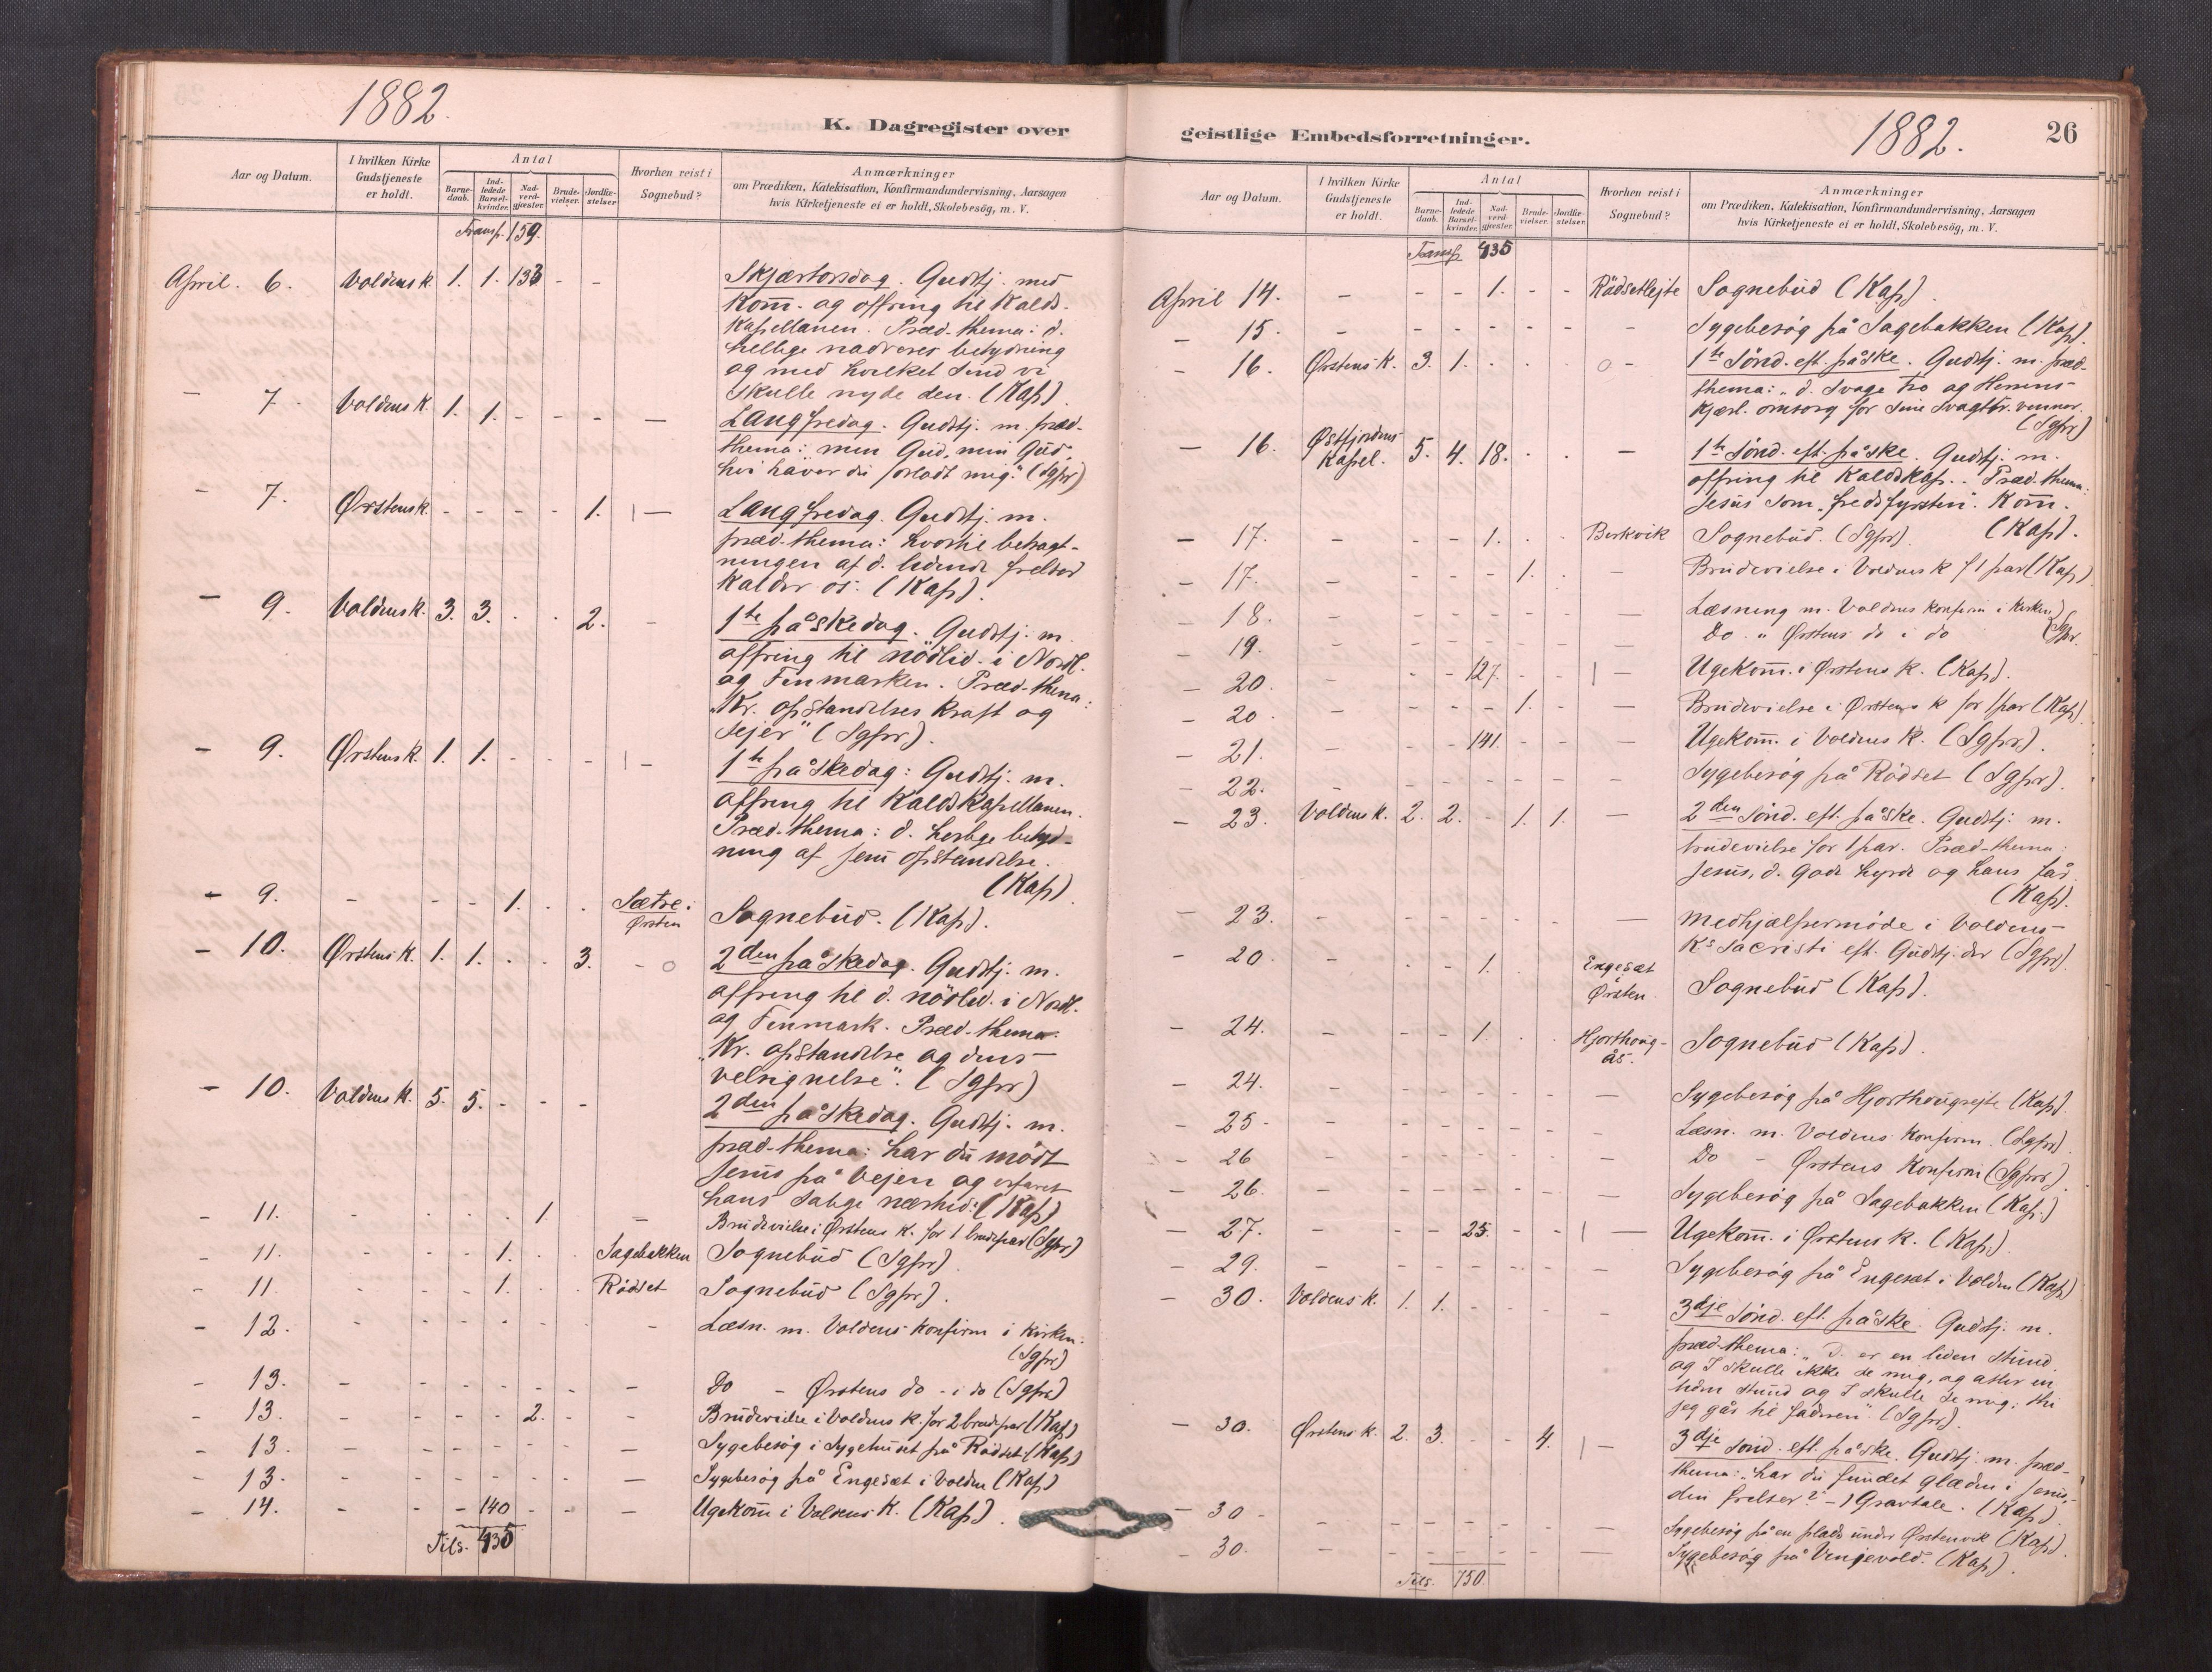 1882.
K. Dagregister over
Aar og Datum.
I hvilken Kirke Gudstjeneste er holdt.
Antal
Barne-daab.
Ind-ledede Barsel-kvinder.
Nad-verd-gjæster.
Brude-vielser.
Jordfæ-stelser
Hvorhen reist i Sognebud?
Anmærkninger
om Prædiken, Katekisation, Konfirmandundervisning, Aarsagen
hvis Kirketjeneste ei er holdt, Skolebesög, m. V.
Transp. 159.
April. 6. Voldens k. 1. 1. 133 - - Skjærtorsdag. Gudstj. med
Kom̄. og offring til Kalds-
kapellanen. Præd. thema: d.
hellige nadveres betydning
og med hvilket sind vi
skulle nyde den. (Kap)
- 7. Voldens k. 1. 1. - - - - Langfredag. Gudstj. m. præd-
thema: min Gud, min Gud,
hvi haver du forladt mig." (Sgpr)
- 7. Ørstens k. - - - - 1. | - Langfredag. Gudstj. m.
præd-thema: hvortil betragt-
ningen af d. lidende frelser
kalder os. (Kap).
- 9. Voldens k. 3. 3. - - 2. - 1ste påskedag. Gudstj. m.
offring til nödlid. i Nordl.
og Finmarken. Præd-thema:
"Kr. opstandelses kraft og
sejer" (Sgpr).
- 9. Ørstens k. 1. 1. - - - | - 1ste påskedag: Gudstj. m.
offring til Kaldskapellanen.
Præd-thema: d. herlige betyd-
ning af Jesu opstandelse.
(Kap)
- 9. - - - 1. - - Sætre i Ørsten Sognebud. (Kap).
- 10. Ørstens k. 1. 1. - - 3. - o 2den påskedag. Gudstj. m.
offring til d. nödlid. i Nordl.
og Finmark. Præd-thema
"Kr. opstandelse og dens
velsignelse". (Sgpr)
- 10. Voldens k. 5. 5. - - - 2den påskedag. Gudstj. m.
præd-thema: har du mödt
Jesus på Vejen og erfaret
hans salige nærhed: (Kap)
- 11. - - - - 1. - - Brudevielse i Ørstens k. for 1 brudepar (Sgpr)
- 11. - - - 1. - - Sagebakken Sognebud (Sgpr)
- 11 - - - 1. - - Rödset Sognebud (Sgpr).
- 12. - - - - - - - Læsn. m. Voldens konfirm i kirken.
(Sgpr)
- 13. - - - - - - - Do - Ørstens do - i do (Sgpr)
- 13. - - - - 2. - - Brudevielse i Voldens k. for 2 brudepar (Kap)
- 13. - - - - - - - Sygebesög i Sygehuset på Rödset (Kap)
- 13. - - - - - - - Sygebesög på Engesæt i Volden (Kap)
- 14. - - - 140 - - - Ugekom̄ i Voldens k. (Kap).
Tils. 435
geistlige Embedsforretninger.
1882.
26
Aar og Datum.
I hvilken Kirke Gudstjeneste er holdt.
Antal
Barne-daab.
Ind-ledede Barsel-kvinder.
Nad-verd-gjæster.
Brude-vielser.
Jordfæ-stelser.
Hvorhen reist i Sognebud?
Anmærkninger
om Prædiken, Katekisation, Konfirmandundervisning, Aarsagen
hvis Kirketjeneste ei er holdt, Skolebesög, m. V.
Transp. 435
April 14. - - - 1. - - Rödsetlejte Sognebud (Kap).
- 15. - - - - - - - Sygebesög på Sagebakken (Kap).
- 16. Ørstens k. 3. 1. - - - o - 1ste Sönd. eft. påske. Gudstj. m. præd-
thema: "d. svage tro og Herrens
kjærl. omsorg for sine svagttr. venner.
(Sgpr)
- 16. Østfjordens Kapel. 5. 4. 18. - - - 1ste Sönd. eft. påske. Gudstj. m.
offring til Kaldskap.. Præd-thema:
Jesus som "fredsfyrsten". Kom̄.
(Kap).
- 17. - - - 1. - - Berkvik Sognebud. (Sgpr).
- 17. - - - - 1. - - Brudevielse i Voldens k f 1 par (Kap)
- 18. - - - - - - - Læsning m. Voldens konfirm i kirken)
- 19. - - - - - - - Do " Ørstens do i do (Sgpr.
- 20. - - - 127. - - | - Ugekom̄. i Ørstens k. (Kap).
- 20 - - - - 1. - - Brudevielse i Ørstens k for 1 par (Kap).
- 21. - - - 141. - - - Ugekom̄. i Voldens k. (Sgpr).
- 22. - - - - - - - Sygebesög på Rödset (Sgpr).
- 23. Voldens k. 2. 2. - 1. 1. - 2den Sönd. eft. påske. Gudstj. m.
brudevielse for 1 par. Præd-thema:
Jesus, d. gode hyrde og hans får
(Kap).
- 23. - - - - - - - Medhjælpermöde i Voldens
k's sacristi eft. Gudstj. der (Sgpr).
- 20 - - - 1. - - Engesæt Ørsten. Sognebud (Kap).
- 24. - - - 1. - - Hjorthoug-ås. Sognebud (Kap)
- 24. - - - - - - - Sygebesög på Hjorthougrejte (Kap).
- 25 - - - - - - - Læsn. m. Voldens konfirm. (Sgpr)
- 26 - - - - - - - Do - Ørstens konfirm (Sgpr)
- 26. - - - - - - - Sygebesög på Sagebakken (Kap.)
- 27. - - - 25. - - | - Ugekom̄. i Ørstens k. (Kap.)
- 29. - - - - - - - Sygebesög på Engesæt i Volden (Kap)
- 30. Voldens k. 1. 1. - - - - 3dje Sönd. eft. påske. Gudstj. m.
præd-thema: "d. er en liden stund.
og I skulle ikke se mig, og atter en
liden stund og I skulle se mig; thi
jeg går til faderen". (Sgpr).
- 30. Ørstens k. 2. 3. - - 4. | - 3dje sönd. eft. påske. Gudstj. m. præd-
thema: "har du fundet glæden i Jesus,
din frelser?" - 1 Gravtale. (Kap)
- 30 - - - - - - - Sygebesög på en plads under Ørstenvik (Kap)
- 30. - - - - - - - Sygebesög på Vengevold. (Kap)
Tils. 750.